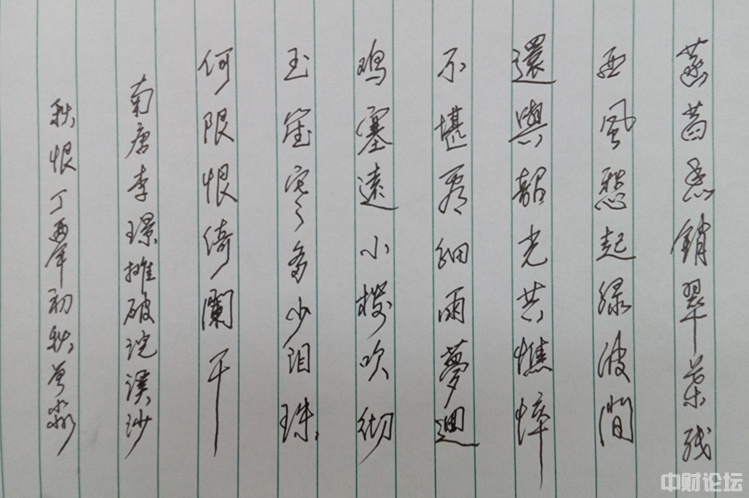 菡萏香銷翠葉残
西風愁起緑波間
還與韶光共憔悴
不堪看細雨夢迴
鸡塞遠小楼吹彻
玉笙寒多少泪珠
何限恨倚闌干
南唐李璟摊破浣溪沙
秋恨丁酉年初秋
中财论坛